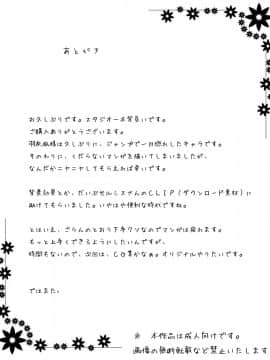 あとがき
お久しぶりです。スタジオーネ背負いです。
ご購入ありがとうございます。
は久しぶりに、ジャンプで一目惚れしたキャラです。
そのわりに、くだらないマンガを描いてしまいましたが、
なんだかニヤニヤしてもらえれば幸いです。
背景効果とか、だいぶセルシスさんのCLIP(ダウンロード素材)に
助けてもらいました。いやはや便利な時代ですね。
とはいえ、さらんのとおり下手クソなのでマンガは疲れます。
もっと上手くできるようにしたいんですが、
時間もないので、次回は、CG集かなぁ。オリジナルやりたいです。
ではまた。
※ 本作品は成人向けです。
画像の無断転載など禁止いたします